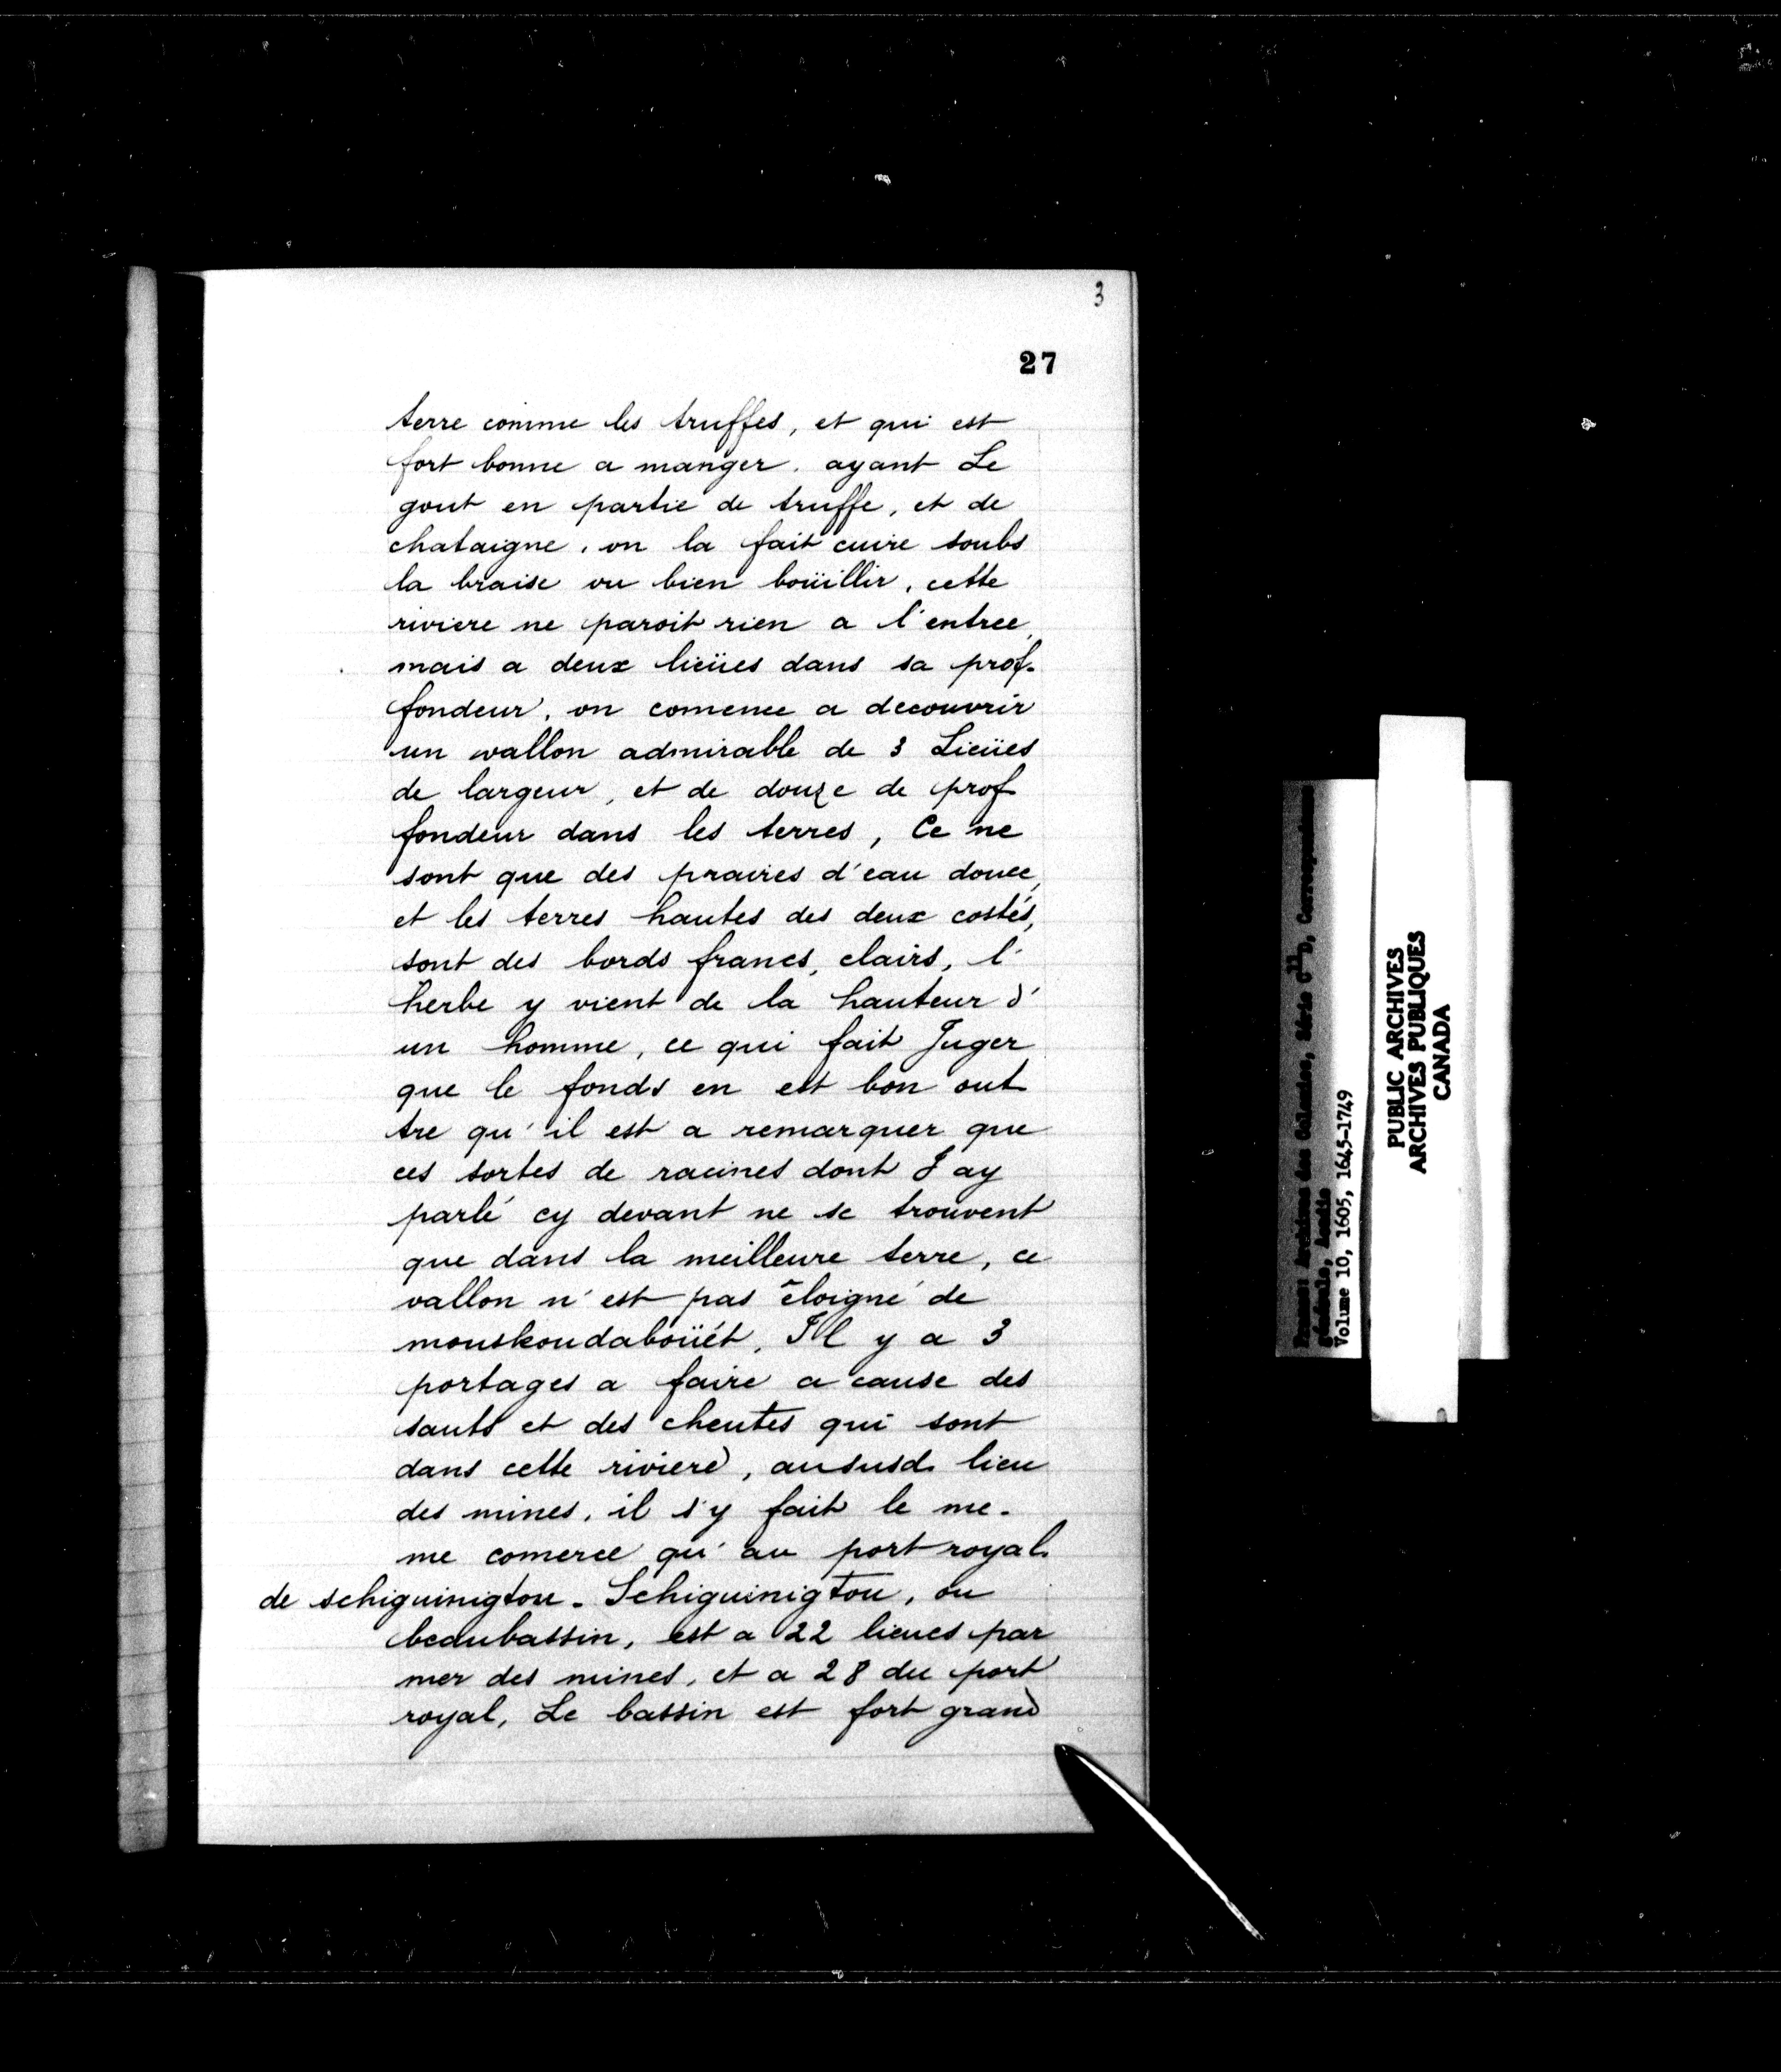 3
27
terre comme les truffes, et qui est
fort bonne a manger. ayant Le
gout en partie de truffe, et de
chataigne, on la fait cuire soubs
la braise ou bien boüillir, cette
riviere ne paroit rien a l'entree,
mais a deux lieües dans sa prof-
fondeur, on comence a decouvrir
un vallon admirable de 3 Lieües
de largeur, et de douze de prof
fondeur dans les terres, Ce ne
sont que des praires d'eau douce,
et les terres hautes des deux costés,
sont des bords francs, clairs, l'
herbe y vient de la hauteur d'
un homme, ce qui fait Juger
que le fonds en est bon out
tre qu'il est a remarquer que
ces sortes de racines dont J ay
parlé cy devant ne se trouvent
que dans la meilleure terre, ce
vallon n'est pas éloigné de
mouskoudaboüét, Il y a 3
portages a faire a cause des
sauts et des cheutes qui sont
dans cette riviere, aususd. lieu
des mines, il s'y fait le me-
me comerce qu'au port royal.
de schiguinigtou. Schiguinigtou, ou
beaubassin, est a 22 lieues par
mer des mines, et a 28 du port
royal, Le bassin est fort grand
France: Archives des Colonies, Série C11D, Correspondance
générale, Acadie
Volume 10, 1605, 1645-1749
PUBLIC ARCHIVES
ARCHIVES PUBLIQUES
CANADA